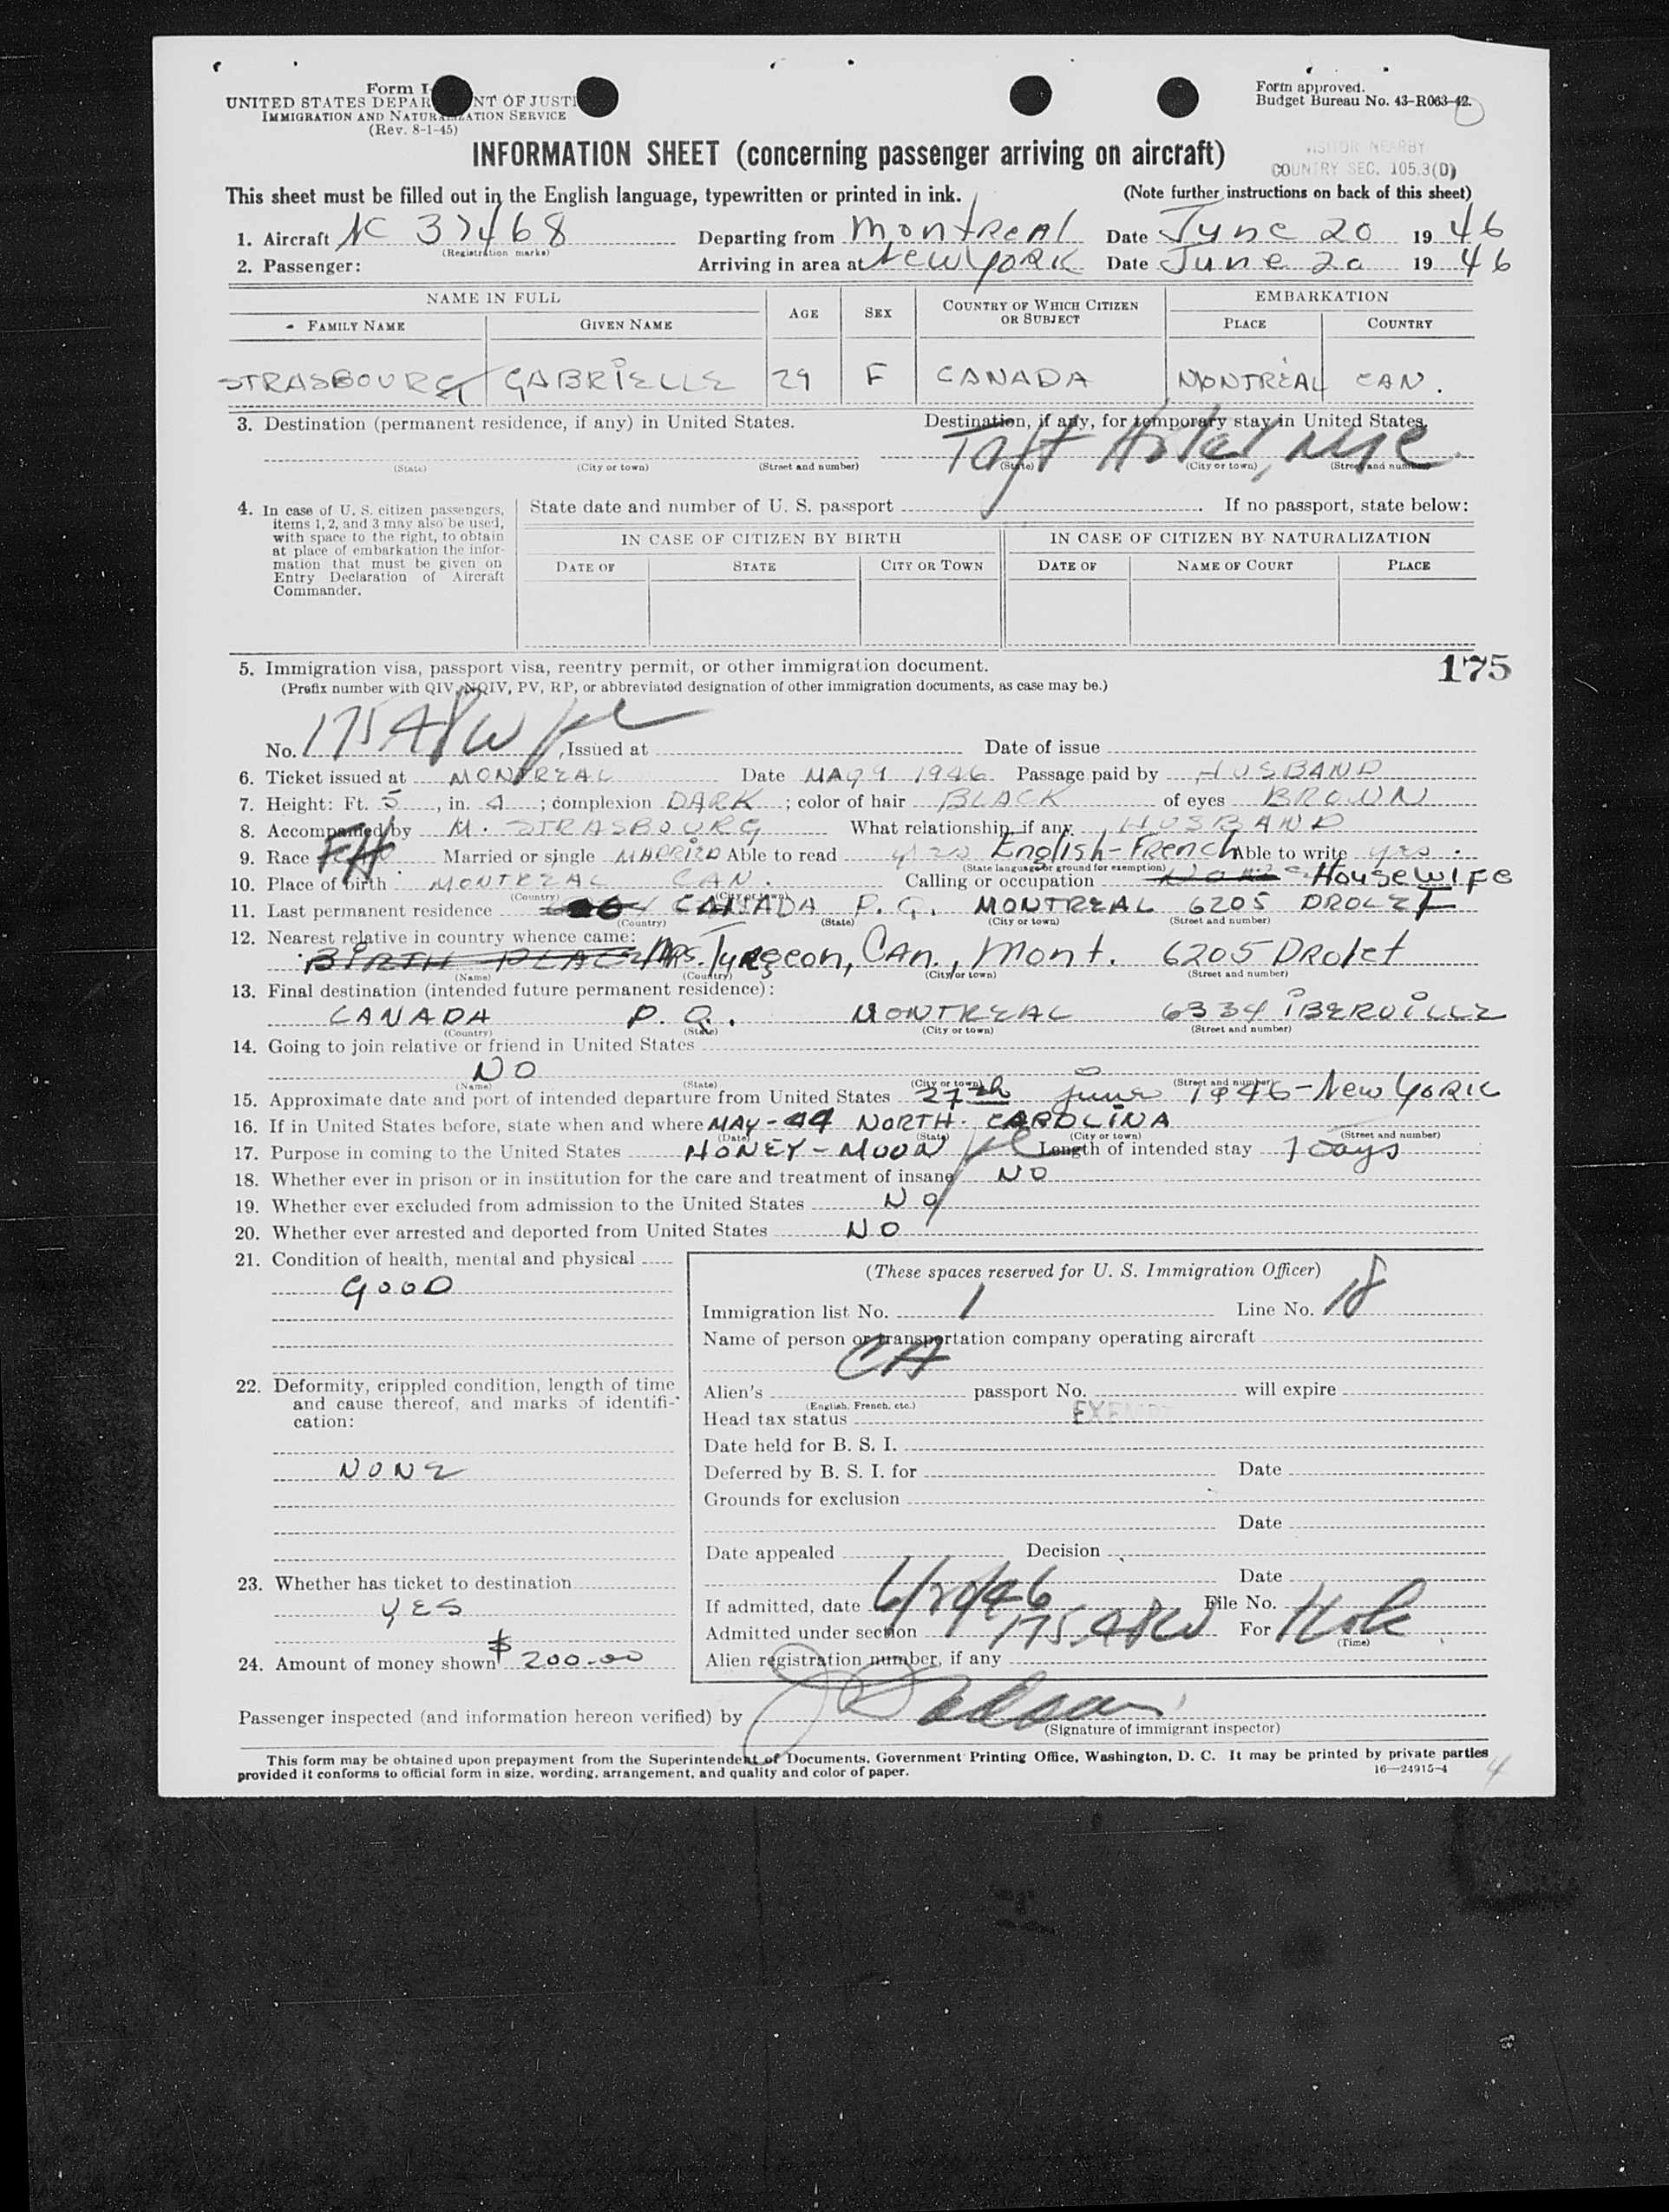 Form I-
UNITED STATES DEPAR NT OF JUSTI
IMMIGRATION AND NATURALIZATION SERVICE
(Rev. 8-1-45)
Form approved.
Budget Bureau No. 43-R063-42.
INFORMATION SHEET (concerning passenger arriving on aircraft)
VISITOR NEARBY
COUNTRY SEC. 105.3(D)
This sheet must be filled out in the English language, typewritten or printed in ink. (Note further instructions on back of this sheet)
1. Aircraft NC 37468 Departing from Montreal Date June 20 1946
(Registration marks)
2. Passenger: Arriving in area at New York Date June 20 1946
NAME IN FULL AGE SEX COUNTRY OF WHICH CITIZEN OR SUBJECT EMBARKATION
FAMILY NAME GIVEN NAME PLACE COUNTRY
STRASBOURG GABRIELLE 29 F CANADA MONTREAL CAN.
3. Destination (permanent residence, if any) in United States. Destination, if any, for temporary stay in United States.
Taft Hotel, NYC
(State) (City or town) (Street and number) (State) (City or town) (Street and number)
4. In case of U. S. citizen passengers, items 1, 2, and 3 may also be used, with space to the right, to obtain at place of embarkation the information that must be given on Entry Declaration of Aircraft Commander.
State date and number of U. S. passport . If no passport, state below:
IN CASE OF CITIZEN BY BIRTH IN CASE OF CITIZEN BY NATURALIZATION
DATE OF STATE CITY OR TOWN DATE OF NAME OF COURT PLACE
5. Immigration visa, passport visa, reentry permit, or other immigration document. 175
(Prefix number with QIV, NQIV, PV, RP, or abbreviated designation of other immigration documents, as case may be.)
No. 175 , Issued at Date of issue
6. Ticket issued at MONTREAL Date MAY 9 1946 Passage paid by HUSBAND
7. Height: Ft. 5, in. 4; complexion DARK; color of hair BLACK of eyes BROWN
8. Accompanied by M. STRASBOURG What relationship, if any HUSBAND
9. Race Married or single MARRIED Able to read yes English-French Able to write yes.
(State language or ground for exemption)
10. Place of birth MONTREAL CAN. Calling or occupation HOUSEWIFE
(Country) (City or town)
11. Last permanent residence CANADA P.Q. MONTREAL 6205 DROLET
(Country) (State) (City or town) (Street and number)
12. Nearest relative in country whence came:
BIRTH PLACE Mrs. Turgeon, Can., Mont. 6205 Drolet
(Name) (Country) (City or town) (Street and number)
13. Final destination (intended future permanent residence):
CANADA P.Q. MONTREAL 6334 IBERVILLE
(Country) (State) (City or town) (Street and number)
14. Going to join relative or friend in United States
NO
(Name) (State) (City or town) (Street and number)
15. Approximate date and port of intended departure from United States 27th june 1946 - New York
16. If in United States before, state when and where MAY-44 NORTH-CAROLINA
(Date) (State) (City or town) (Street and number)
17. Purpose in coming to the United States HONEY-MOON Length of intended stay 7 Days
18. Whether ever in prison or in institution for the care and treatment of insane NO
19. Whether ever excluded from admission to the United States NO
20. Whether ever arrested and deported from United States NO
21. Condition of health, mental and physical
GOOD
22. Deformity, crippled condition, length of time and cause thereof, and marks of identification:
NONE
23. Whether has ticket to destination
YES
24. Amount of money shown $200.00
(These spaces reserved for U. S. Immigration Officer)
Immigration list No. 1 Line No. 18
Name of person or transportation company operating aircraft
Alien's passport No. will expire
(English, French, etc.)
Head tax status EXEMPT
Date held for B. S. I.
Deferred by B. S. I. for Date
Grounds for exclusion
Date
Date appealed Decision
Date
If admitted, date 6/20/46 File No.
Admitted under section 175 For
(Time)
Alien registration number, if any
Passenger inspected (and information hereon verified) by
(Signature of immigrant inspector)
This form may be obtained upon prepayment from the Superintendent of Documents, Government Printing Office, Washington, D. C. It may be printed by private parties
provided it conforms to official form in size, wording, arrangement, and quality and color of paper. 16—24915-4